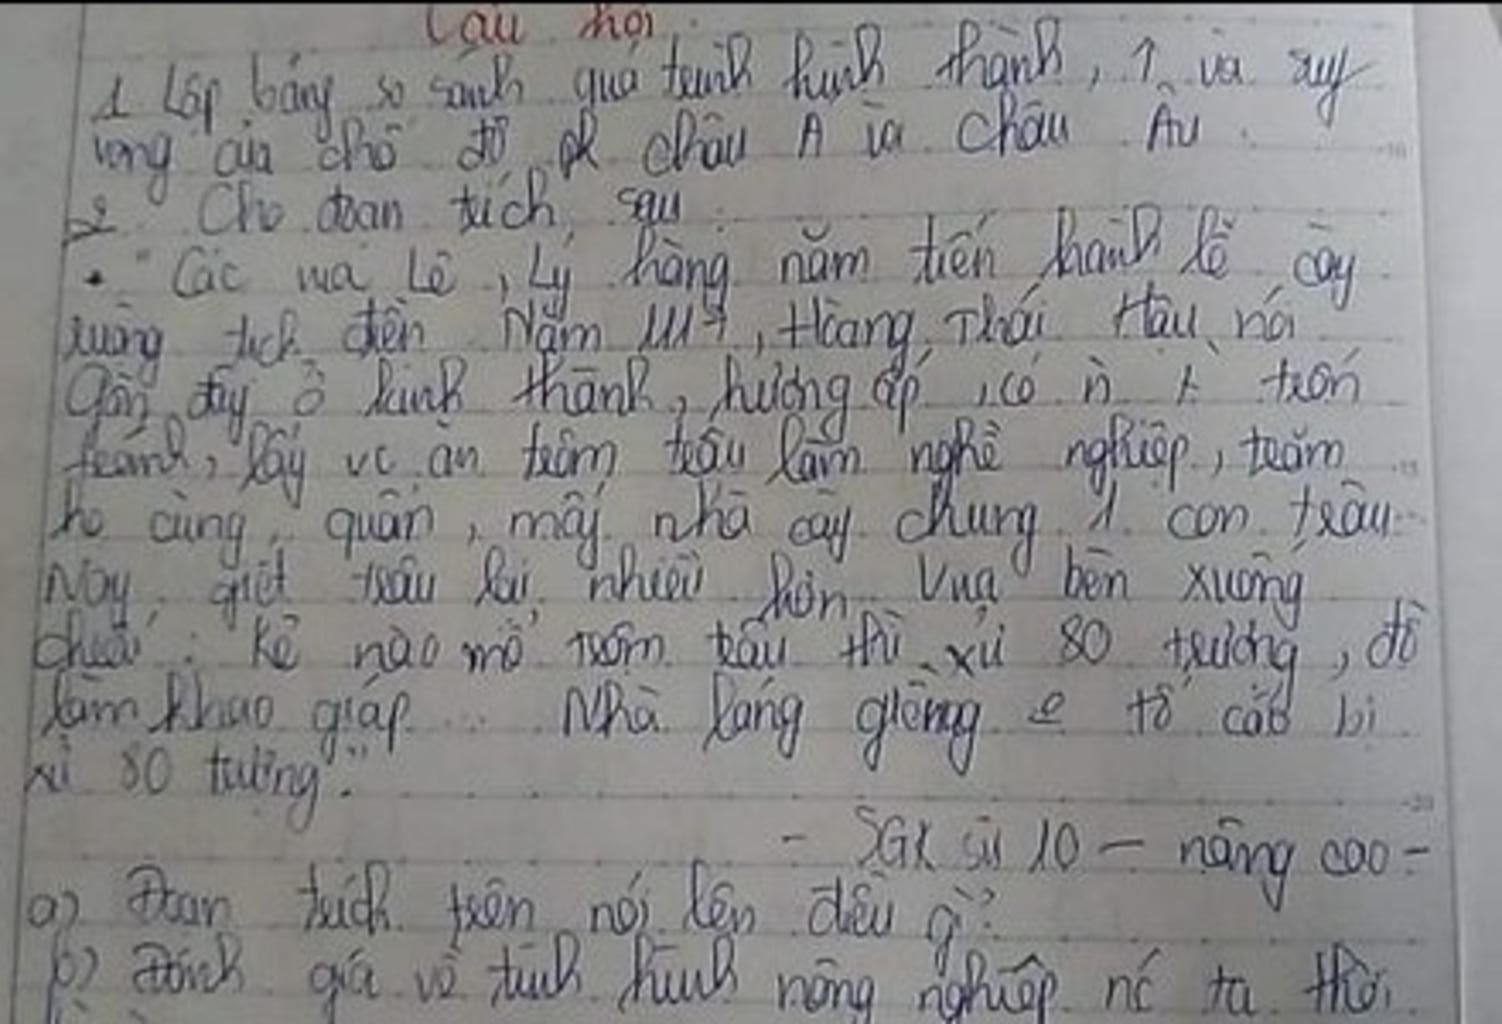 Câu hỏi
1 Lập bảng so sánh quá trình hình thành, ↑ và suy
vong của chế độ pk châu Á và Châu Âu.
2. Cho đoạn trích sau
"Các vua Lê, Lý hàng năm tiến hành lễ cày
ruộng tịch điền. Năm 1117, Hoàng Thái Hậu nói
Gần đây ở kinh thành, hương ấp, có n trốn
tránh, lấy vc ăn trộm trâu làm nghề nghiệp, trăm
họ cùng quẫn, mấy nhà cày chung 1 con trâu
Nay giết trâu lại nhiều hơn. Vua bèn xuống
chiếu: Kẻ nào mổ trộm trâu thì xử 80 trượng, đồ
làm khao giáp... Nhà láng giềng tố cáo bị
xử 80 trượng".
- SGK sử 10 - nâng cao -
a) Đoạn trích trên nói lên điều gì?
b) Đánh giá về tình hình nông nghiệp nc ta thời